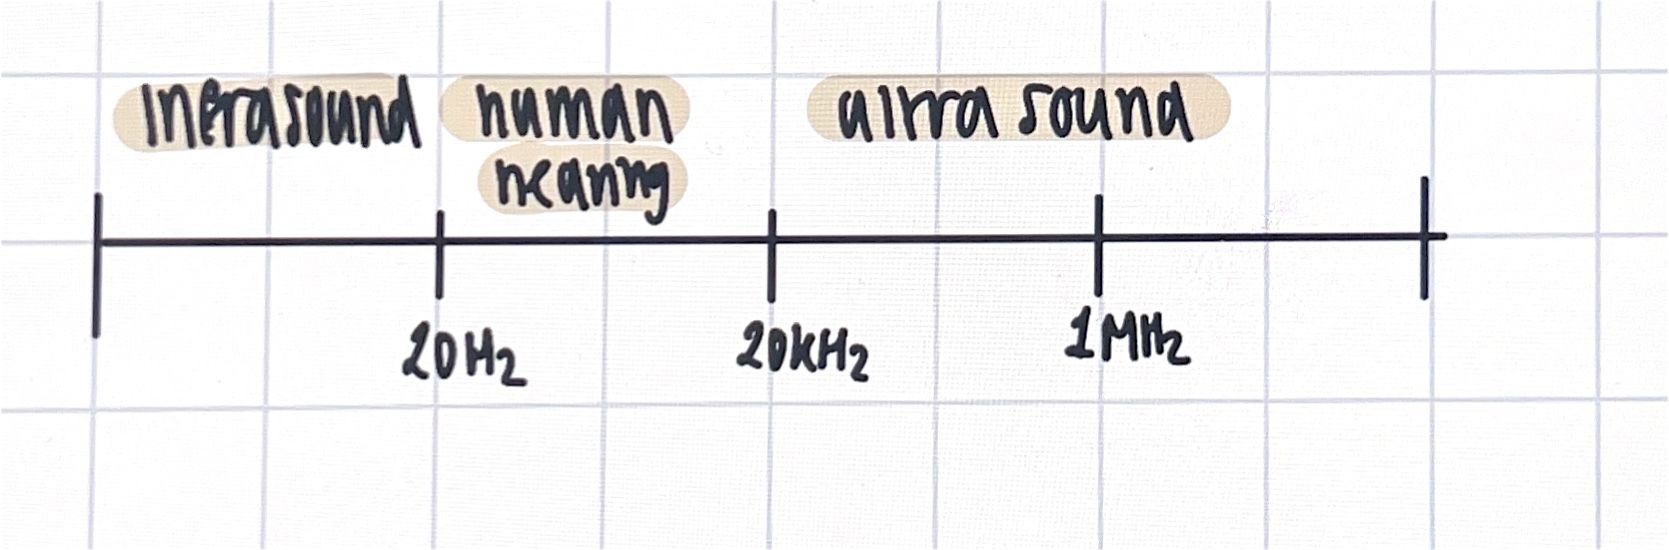 Infrasound human ultra sound
hearing
20Hz 20kHz 1MHz